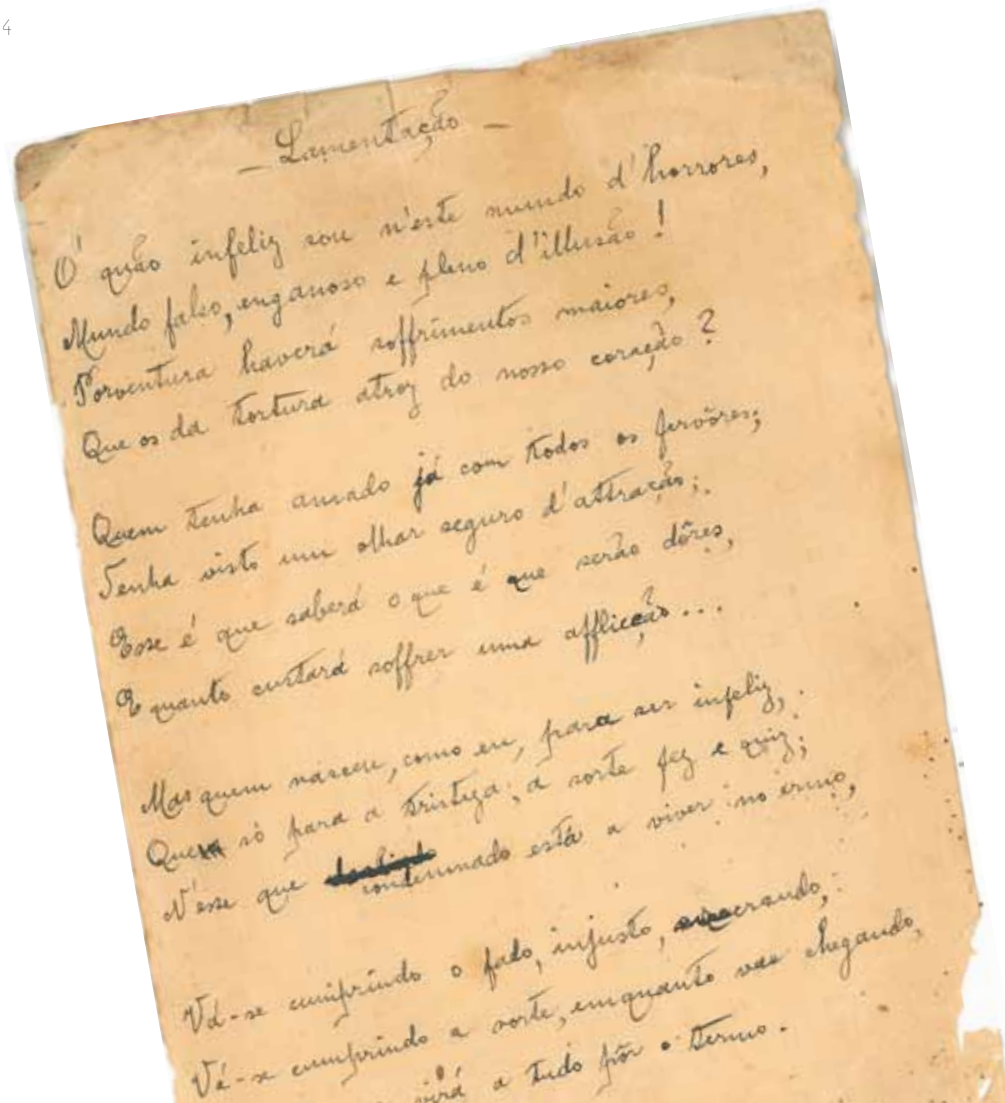 4
- Lamentação -
Ó quão infeliz sou n'este mundo d'horrores,
Mundo falso, enganoso e pleno d'illusão!
Porventura haverá soffrimentos maiores,
Que os da tortura atroz do nosso coração?
Quem tenha amado já com todos os fervôres;
Tenha visto um olhar seguro d'attracão;
Esse é que saberá o que é que serão dôres,
E quanto custará soffrer uma afflicção...
Mas quem nasceu, como eu, para ser infeliz,
Quem só para a tristeza, a sorte fez e quiz;
N'esse que condemnado está a viver no ermo,
Vê-se cumprindo o fado, injusto, execrando,
Vê-se cumprindo a sorte, emquanto vae chegando,
virá a tudo pôr o termo.